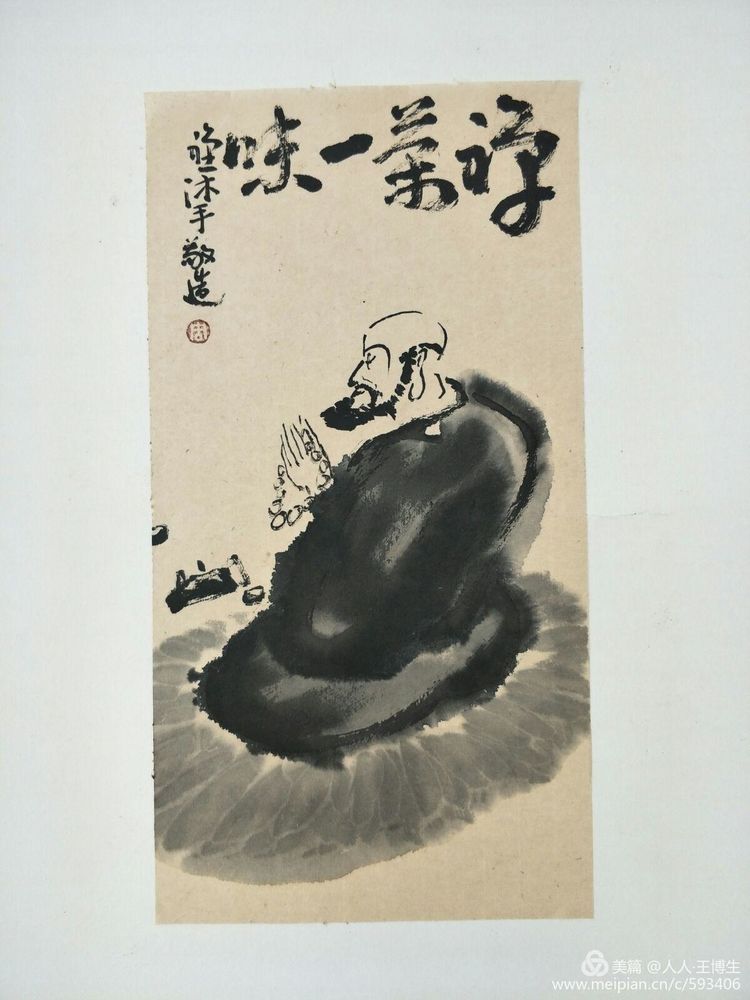 禅茶一味
沐手敬造
美篇 @人人·王博生
www.meipian.cn/c/593406